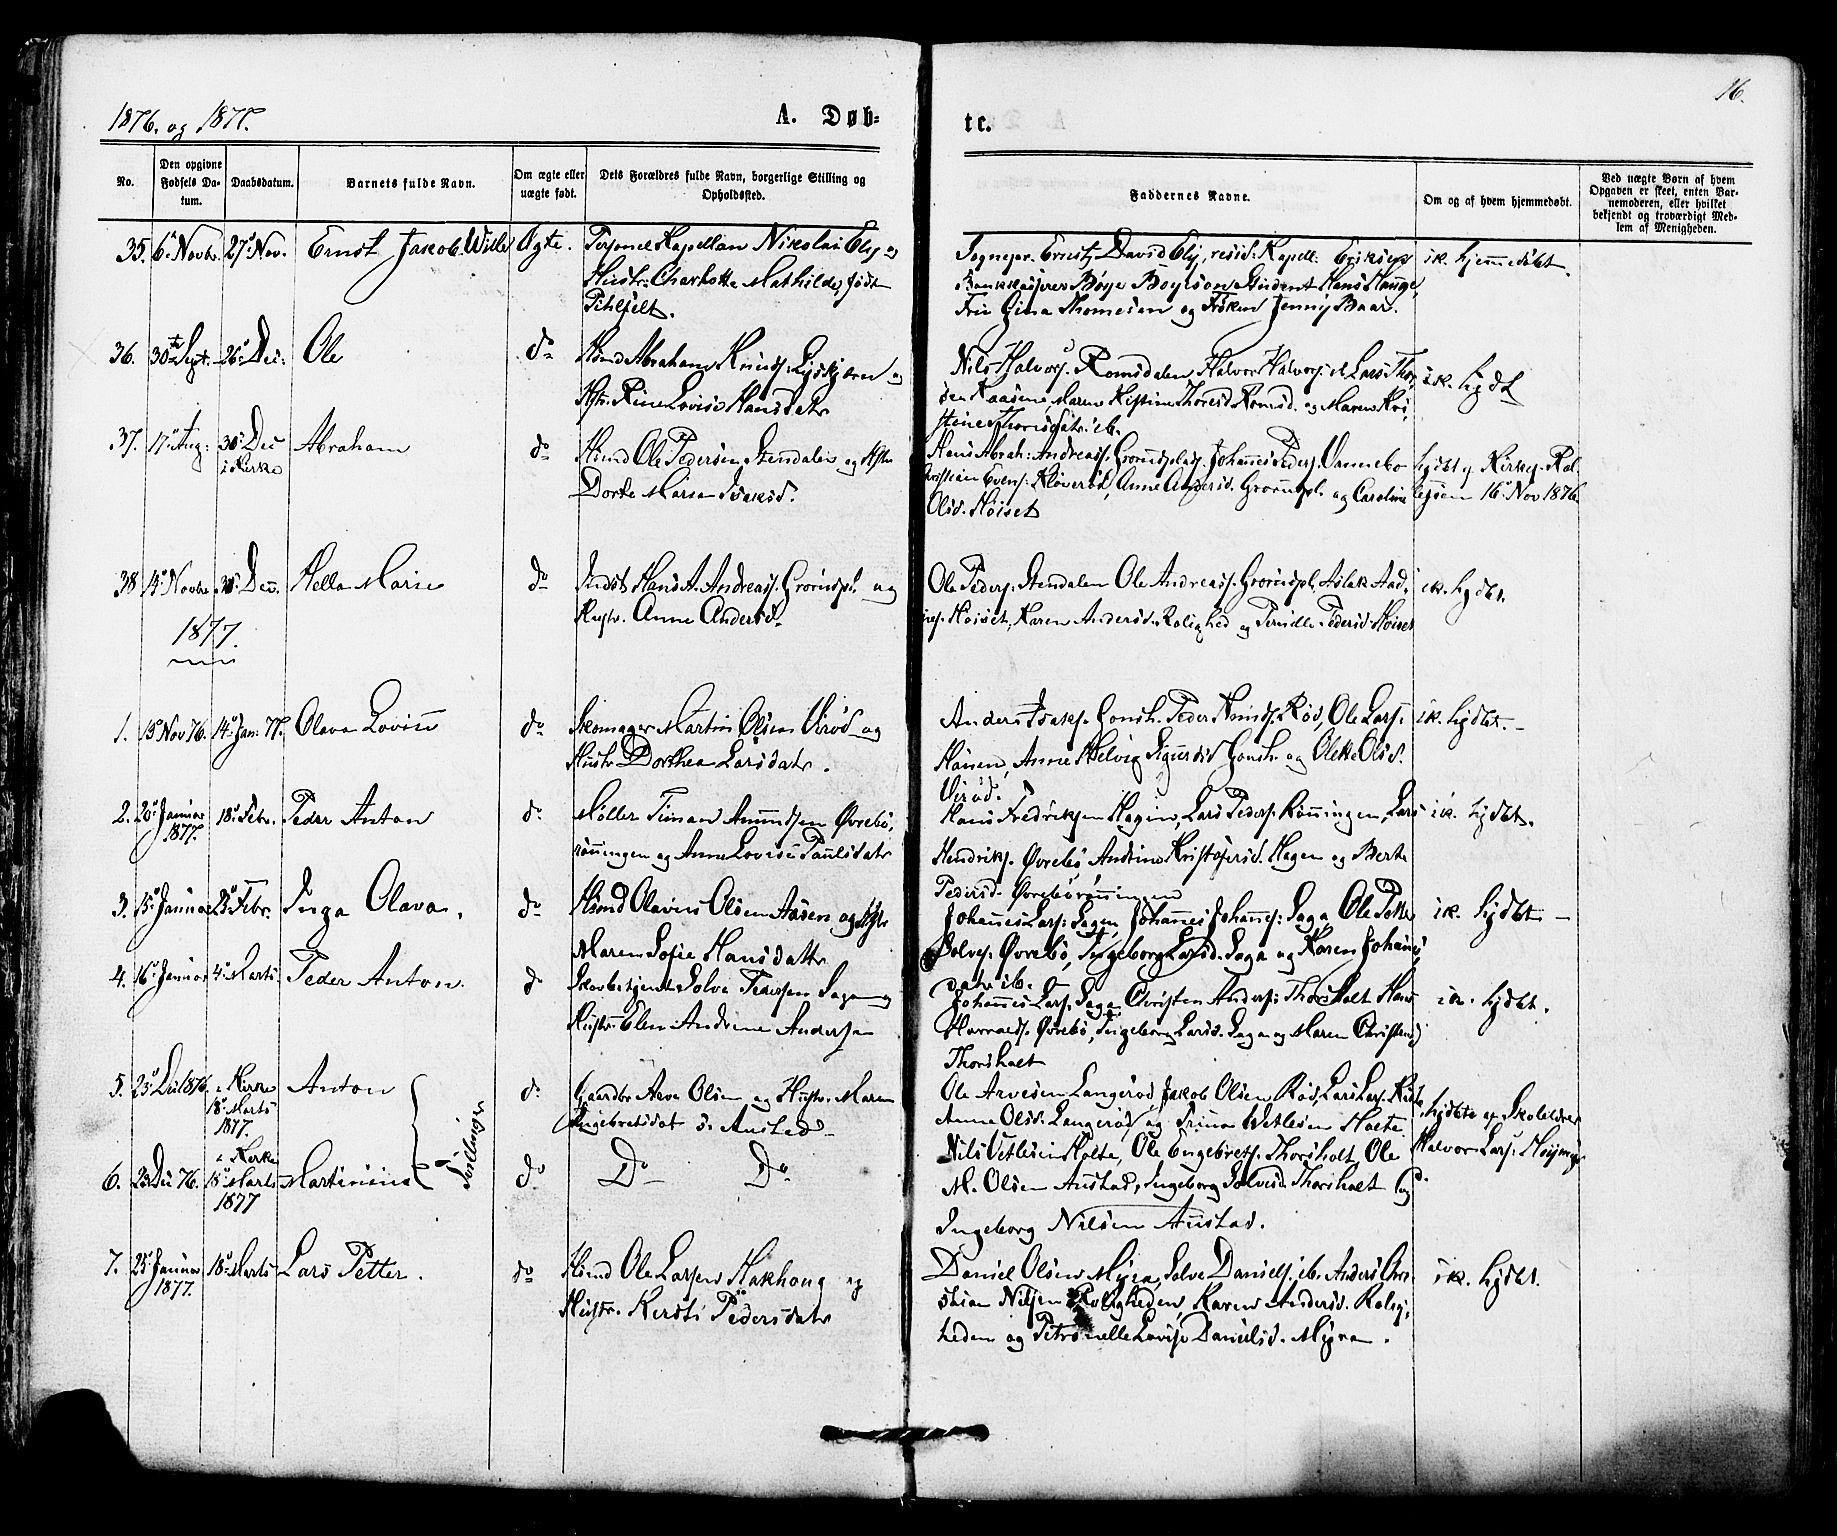 16.
1876. og 1877.
A. Døb-
te.
No.
Den opgivne Fødsels Datum.
Daabsdatum.
Barnets fulde Navn.
Om ægte eller uægte født.
Dets Forældres fulde Navn, borgerlige Stilling og Opholdssted.
Faddernes Navne.
Om og af hvem hjemmedøbt.
Ved uægte Børn af hvem Opgaven er skeet, enten Barnemoderen, eller hvilket bekjendt og troværdigt Medlem af Menigheden.
35. 6' Novbr. 27' Nov. Ernst Jakob Wille Ægte. Personel Kapellan Nikolai Ely og
Hustr: Charlotte Mathilde, født
Pihlfelt.
Sognepr. Ernst David Ely, resid: Kapell: Eriksen
Bankkasserer Børge Boyeson Student Hans Hauge,
Fru Gina Thomesen og Frøken Jenny Baar.
ik. hjemmedøbt.
36. 30te Sept. 26' Dec: Ole do Hsmd Abraham Knuds: Lyskjæren og
Hstr. Rine Lovise Hansdatr
Nils Halvors. Romsdalen Halvor Halvors. ib. Lars Thor
sen Kaasene, Maren Kistine Thoresd. Romsd. og Maren Kri,
stine Thorsdatr. ib.
ik. hjdbt
37. 17' Aug: 30' Dec i Kirke Abraham do Hsmd Ole Pedersen Stendalen og Hstr
Dorte Maria Isaksd.
Hans Abrah: Andreass. Grorusplads, Johannes Peders. Vannebo
Kristian Evens. Kløverød, Anne Andersd. Grorudpl. og Caroline
Olsd. Høiset
hjdbt af Kirkes. Rol
lefsen 16' Nov 1876.
38 14' Novbr 30' Dec. Hella Marie do Indst. Hans A. Andreass. Grorudpl. og
Hustr. Anne Andersd.
Ole Peders. Stendalen Ole Andreass. Grorudpl. Aslak Aad,
nes. Høiset, Karen Andersd. Rolighed og Pernille Pedersd. Høiset
ik. hjdbt.
1877.
1. 15 Nov 76. 14' Jan: 77. Olava Lovise do Skomager Martin Olsen Virød og
Hustr Dorthea Larsdatr.
Anders Isaks. Gonsh. Peder Knuds. Rød, Ole Lars.
Hanen, Anne Helvig Sigurdsd Gonsh. og Olette Olsd.
Virød.
ik. hjdbt.
2. 20' Januar 1877. 18' Febr. Peder Anton do Møller Timan Amundsen Øvrebø,
rønningen og Anne Lovise Paulsdatr
Hans Fredriksen Hagen, Lars Peders. Rønningen, Lars
Hendriks. Øvrebø Andrine Kristofersd. Hagen og Berte
Pedersd. Øvrebørønningen
ik. hjdbt.
3. 15' Januar 25' Febr. Inga Olava. do Hsmd Olavus Olsen Aasen og Hstr
Maren Sofie Hansdattr
Johannes Lars: Saga, Johannes Johanns: Saga Ole Petter
Solves. Øvrebø, Ingeborg Larsd. Saga og Karen Johannes
datr. ib.
ik. hjdbt
4. 16' Januar 4' Marts Peder Anton. do Skarbetjent Solve Pedersen Saga og
Hustr. Elen Andrine Andersen
Johannes Lars. Saga Christen Anders: Thorsholt Hans
Harrads. Øvrebø, Ingeborg Larsd. Saga og Maren Christensd
Thorsholt
ik. hjdbt.
5. 23' Dec 1876. i Kirke 18' Marts 1877. Anton do Gaardbr Arve Olsen og Hustr. Maren
Engebretsdat s. Austad
Ole Arvesen Langerød, Jakob Olsen Rød, Lars Lars.
Anne Olsd. Langerød og Trina Vetlesen Holte
hjdbte af Skolelærer
Halvor Lars:
Tvillinger
6. 23 Dec 76. i Kirke 18' Marts 1877 Martinius do Do Do
Nils Vetlesen Holte, Ole Engebrets. Thorsholt, Ole
M. Olsen Austad, Ingeborg Solvesd. Thorsholt og
Ingeborg Nilsen Austad.
do
7. 25' Januar 1877. 18' Marts Lars Petter. do Hsmd Ole Larsen Hakhoug og
Hustr. Kersti Pedersdatr
Daniel Olsen Myra, Solve Daniels. ib. Anders Chri
stian Nilsen Roligheden, Karen Andersd. Rolig,
heden og Petronelle Lovise Danielsd. Myra.
ik. hjdbt.